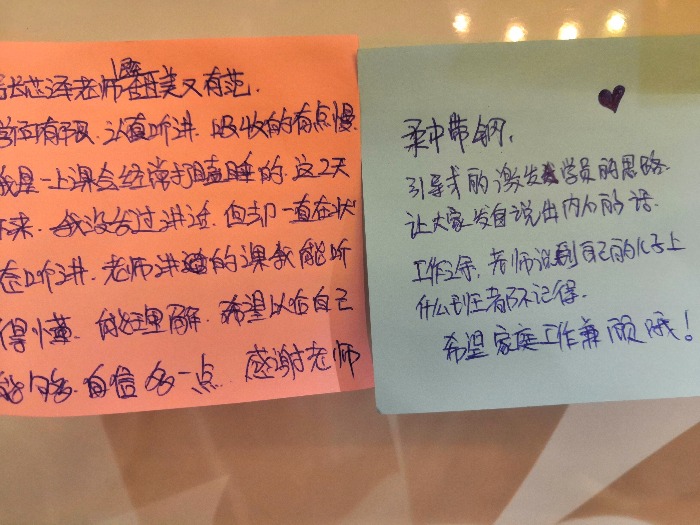 芯泽老师 美又有范.
学位有限. 认真听讲. 吸收的有点慢.
我是一上课会经常打瞌睡的. 这2天
下来. 我没发过讲过. 但却一直在状
态听讲. 老师讲的课我能听
得懂. 能理解. 希望以后自己
能够 自信多一点. 感谢老师
柔中带钢.
引导式的激发学员的思路.
让大家发自说出内心的话.
工作狂, 老师说到自己的儿子上
什么班都不记得.
希望家庭工作兼顾哦!